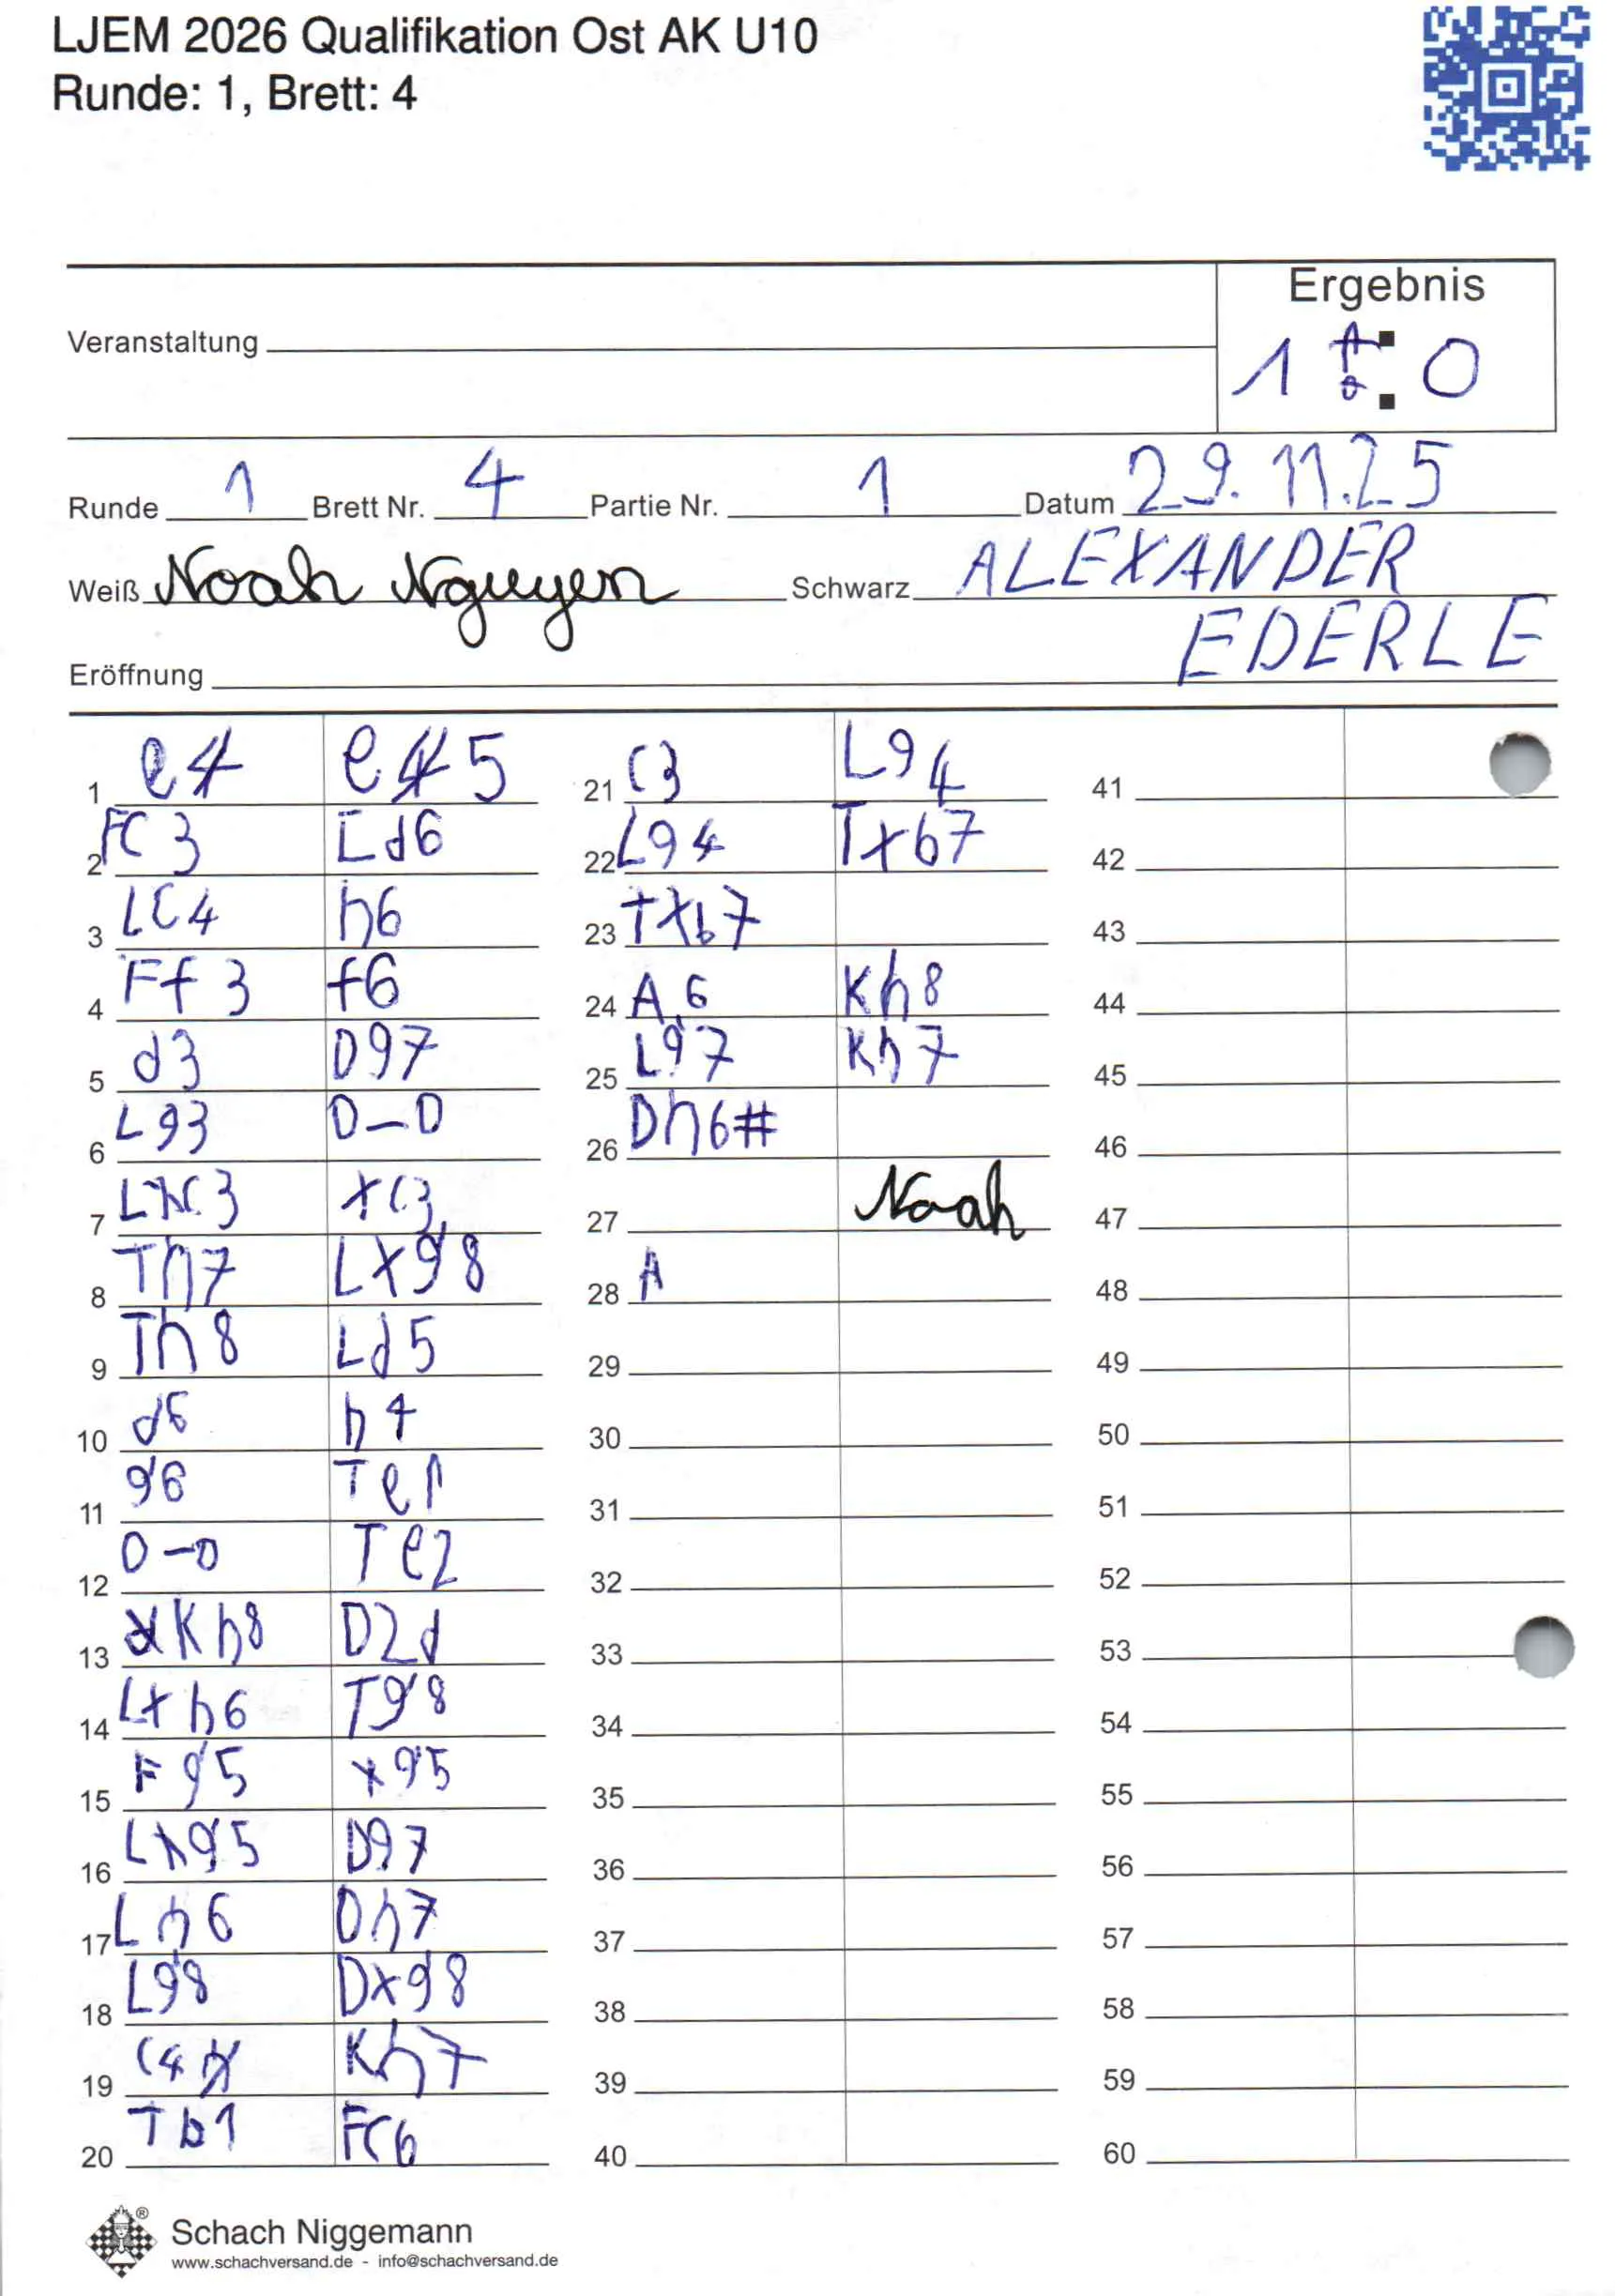 LJEM 2026 Qualifikation Ost AK U10
Runde: 1, Brett: 4
Ergebnis
Veranstaltung
1 : 0
Runde 1 Brett Nr. 4 Partie Nr. 1 Datum 29.11.25
Weiß Noah Nguyen Schwarz ALEXANDER
EDERLE
Eröffnung
1 e4 e5
2 FC3 Ld6
3 LC4 h6
4 Ff3 f6
5 d3 D97
6 L93 0-0
7 xC3
8 Th7 Lx98
9 Th8 Ld5
10 d6 h4
11 96 Te1
12 0-0 Te2
13 Kh8 D2d
14 Lxh6 T98
15 F95 x95
16 Lx95 D97
17 Lh6 Dh7
18 L98 Dx98
19 C4 Kh7
20 Tb1 FC6
21 C3 L94
22 L94 Txb7
23 Txb7
24 A6 Kh8
25 L97 Kh7
26 Dh6#
27 Noah
28 A
29
30
31
32
33
34
35
36
37
38
39
40
41
42
43
44
45
46
47
48
49
50
51
52
53
54
55
56
57
58
59
60
Schach Niggemann
www.schachversand.de - info@schachversand.de